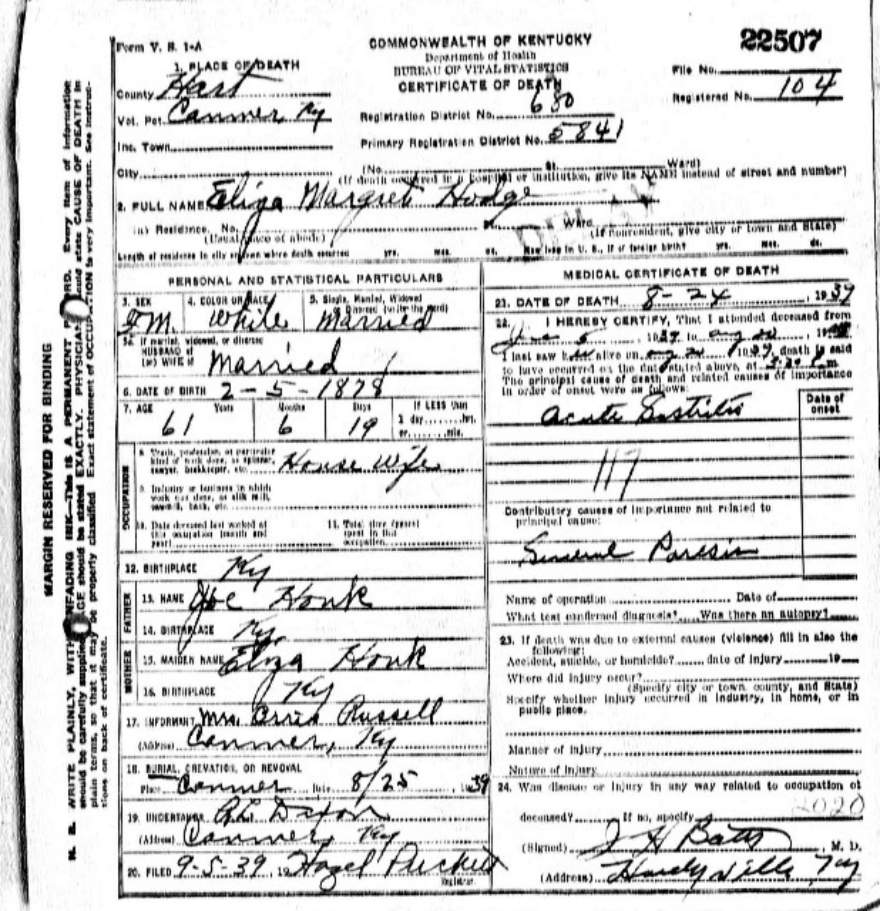 22507
Form V. S. 1-A
COMMONWEALTH OF KENTUCKY
Department of Health
BUREAU OF VITAL STATISTICS
CERTIFICATE OF DEATH
File No.
Registered No. 104
1. PLACE OF DEATH
County Hart
Vot. Pct. Canmer Ky
Inc. Town
City
Registration District No. 680
Primary Registration District No. 5841
(No. St. Ward)
(If death occurred in a hospital or institution, give its NAME instead of street and number)
2. FULL NAME Eliza Margret Hodge
(a) Residence. No. St. Ward
(Usual place of abode) (If nonresident, give city or town and State)
Length of residence in city or town where death occurred yrs. mos. ds. How long in U. S., if of foreign birth? yrs. mos. ds.
PERSONAL AND STATISTICAL PARTICULARS
3. SEX 4. COLOR OR RACE 5. Single, Married, Widowed or Divorced (write the word)
F M. White Married
5a. If married, widowed, or divorced
HUSBAND of
(or) WIFE of Married
6. DATE OF BIRTH 2-5-1878
7. AGE Years Months Days If LESS than
61 6 19 1 day hrs.
or min.
OCCUPATION
8. Trade, profession, or particular
kind of work done, as spinner,
sawyer, bookkeeper, etc. House Wife
9. Industry or business in which
work was done, as silk mill,
sawmill, bank, etc.
10. Date deceased last worked at
this occupation (month and
year)
11. Total time (years)
spent in this
occupation
12. BIRTHPLACE Ky
FATHER
13. NAME Joe Honk
14. BIRTHPLACE Ky.
MOTHER
15. MAIDEN NAME Eliza Honk
16. BIRTHPLACE Ky
17. INFORMANT Mrs. Russell
(Address) Canmer, Ky
18. BURIAL, CREMATION, OR REMOVAL
Place Canmer Date 8/25, 1939
19. UNDERTAKER Dixon
(Address) Canmer Ky
20. FILED 9-5-39, 19 Hazel Puckett
Registrar.
MEDICAL CERTIFICATE OF DEATH
21. DATE OF DEATH 8-24, 1939
22. I HEREBY CERTIFY, That I attended deceased from
5, 1939, to Aug 20, 19
I last saw h alive on Aug 20, 1939, death is said
to have occurred on the date stated above, at m.
The principal cause of death and related causes of importance
in order of onset were as follows:
Date of
onset
Acute Gastritis
117
Contributory causes of importance not related to
principal cause:
General Paresis
Name of operation Date of
What test confirmed diagnosis? Was there an autopsy?
23. If death was due to external causes (violence) fill in also the
following:
Accident, suicide, or homicide? date of injury 19
Where did injury occur?
(Specify city or town, county, and State)
Specify whether injury occurred in industry, in home, or in
public place.
Manner of injury
Nature of injury
24. Was disease or injury in any way related to occupation of
2020
deceased? If no, specify
(Signed) J H Batts, M. D.
(Address) Hardyville Ky
MARGIN RESERVED FOR BINDING